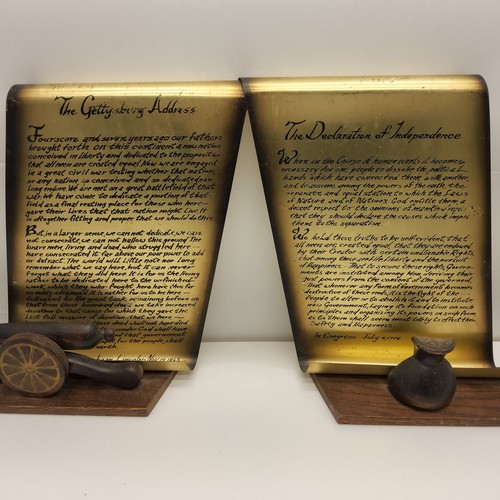 The Gettysburg Address
Fourscore and seven years ago our fathers
brought forth on this continent a new nation
conceived in liberty and dedicated to the proposition
that all men are created equal. Now we are engaged
in a great civil war testing whether that nation,
or any nation so conceived and so dedicated can
long endure. We are met on a great battlefield of that
war. We have come to dedicate a portion of that
field as a final resting place for those who here
gave their lives that that nation might live. It
is altogether fitting and proper that we should do this.
But in a larger sense, we can not dedicate, we can
not consecrate, we can not hallow this ground. The
brave men, living and dead who struggled here
have consecrated it far above our poor power to add
or detract. The world will little note nor long
remember what we say here, but it can never
forget what they did here. It is for us the living
rather to be dedicated here to the unfinished
work which they who fought here have thus far
The Declaration of Independence
When in the Course of human events it becomes
necessary for one people to dissolve the political
bands which have connected them with another,
and to assume among the powers of the earth, the
separate and equal station to which the Laws
of Nature and of Nature's God entitle them, a
decent respect to the opinions of mankind requires
that they should declare the causes which impel
them to the separation.
We hold these truths to be self-evident, that
all men are created equal, that they are endowed
by their Creator with certain unalienable Rights,
that among these are Life, Liberty and the pursuit
of Happiness. That to secure these rights, Govern-
ments are instituted among Men, deriving their
just powers from the consent of the governed.
That whenever any Form of Government becomes
destructive of these ends, it is the Right of the
People to alter or to abolish it, and to institute
new Government, laying its foundation on such
principles and organizing its powers in such form
as to them shall seem most likely to effect their
Safety and Happiness.
In Congress July 4, 1776